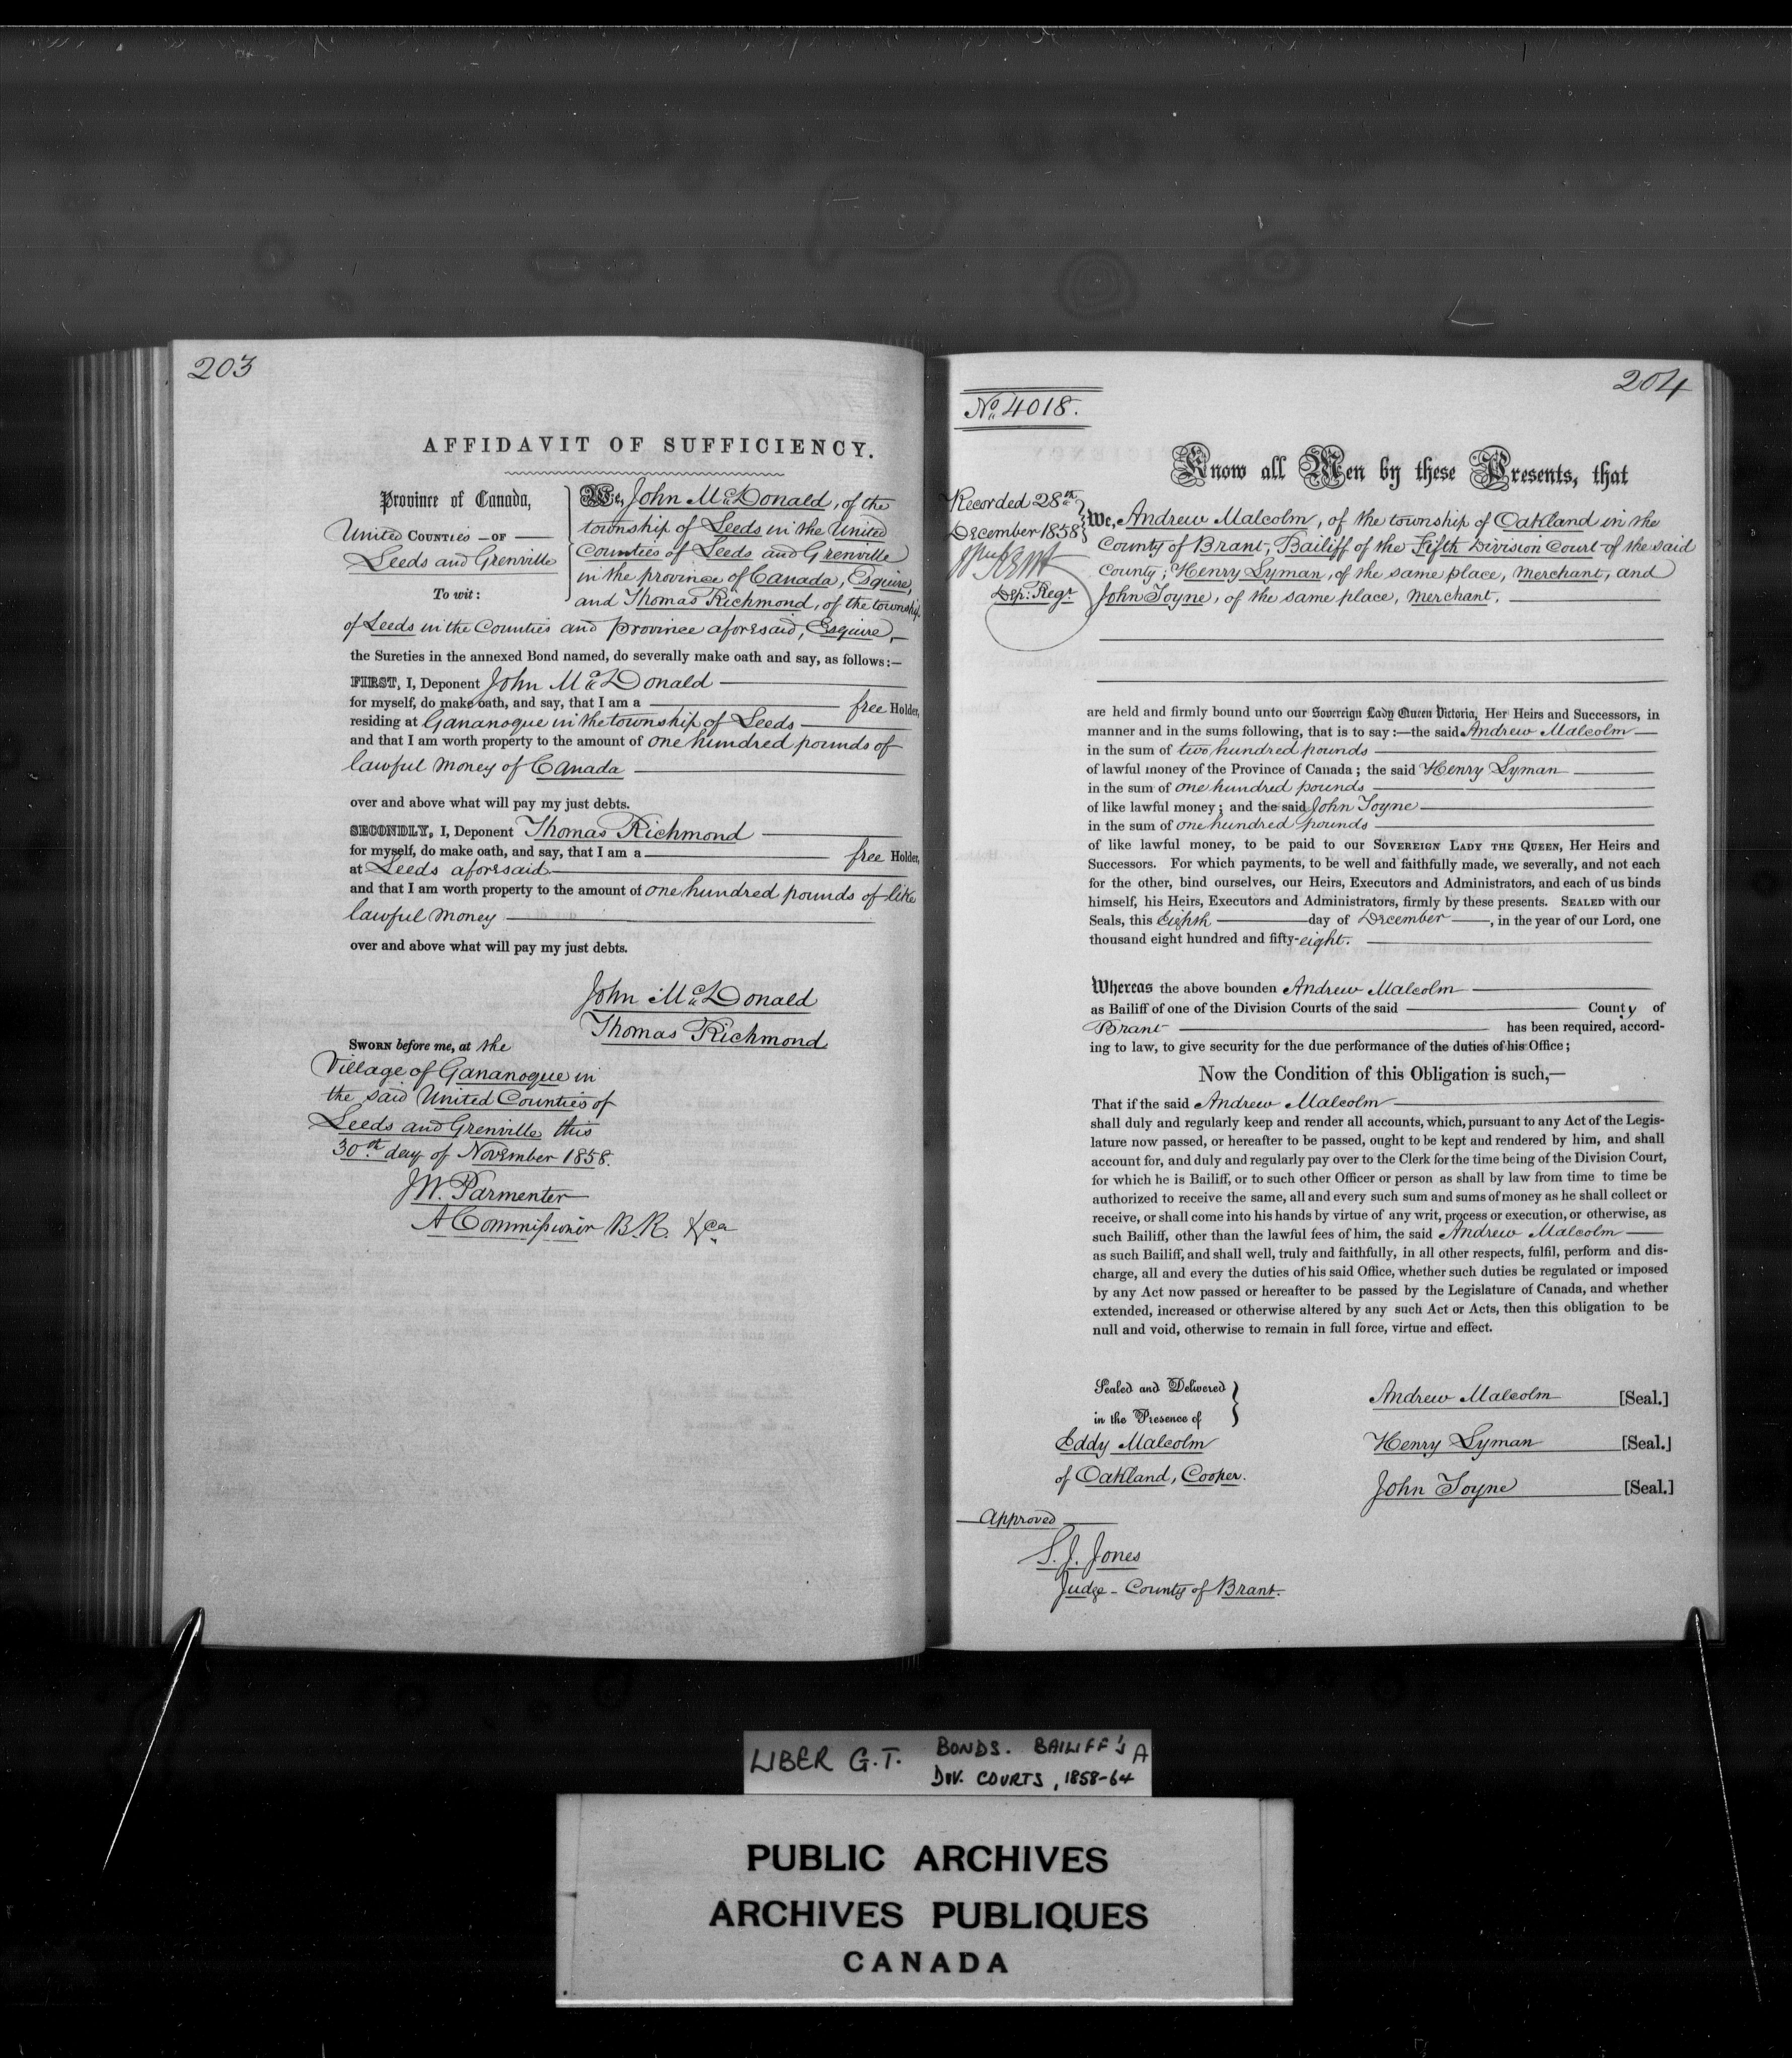 203
AFFIDAVIT OF SUFFICIENCY.
Province of Canada,
United Counties - OF -
Leeds and Grenville
To wit:
We, John McDonald, of the
township of Leeds in the United
Counties of Leeds and Grenville
in the province of Canada, Esquire,
and Thomas Richmond, of the township
of Leeds in the Counties and province aforesaid, Esquire,
the Sureties in the annexed Bond named, do severally make oath and say, as follows:—
FIRST, I, Deponent John McDonald
for myself, do make oath, and say, that I am a free Holder,
residing at Gananoque in the township of Leeds
and that I am worth property to the amount of one hundred pounds of
lawful money of Canada
over and above what will pay my just debts.
SECONDLY, I, Deponent Thomas Richmond
for myself, do make oath, and say, that I am a free Holder,
at Leeds aforesaid
and that I am worth property to the amount of one hundred pounds of like
lawful money
over and above what will pay my just debts.
John McDonald
Thomas Richmond
SWORN before me, at the
Village of Gananoque in
the said United Counties of
Leeds and Grenville this
30th day of November 1858.
J.W. Parmenter
A Commissioner B.R. &ca
204
No. 4018.
Know all Men by these Presents, that
Recorded 28th
December 1858
Dep: Regr
We, Andrew Malcolm, of the township of Oakland in the
County of Brant, Bailiff of the Fifth Division Court of the said
County; Henry Lyman, of the same place, Merchant, and
John Toyne, of the same place, Merchant.
are held and firmly bound unto our Sovereign Lady Queen Victoria, Her Heirs and Successors, in
manner and in the sums following, that is to say:—the said Andrew Malcolm
in the sum of two hundred pounds
of lawful money of the Province of Canada; the said Henry Lyman
in the sum of one hundred pounds
of like lawful money; and the said John Toyne
in the sum of one hundred pounds
of like lawful money, to be paid to our SOVEREIGN LADY THE QUEEN, Her Heirs and
Successors. For which payments, to be well and faithfully made, we severally, and not each
for the other, bind ourselves, our Heirs, Executors and Administrators, and each of us binds
himself, his Heirs, Executors and Administrators, firmly by these presents. SEALED with our
Seals, this Eighth day of December, in the year of our Lord, one
thousand eight hundred and fifty-eight.
Whereas the above bounden Andrew Malcolm
as Bailiff of one of the Division Courts of the said County of
Brant has been required, accord-
ing to law, to give security for the due performance of the duties of his Office;
Now the Condition of this Obligation is such,—
That if the said Andrew Malcolm
shall duly and regularly keep and render all accounts, which, pursuant to any Act of the Legis-
lature now passed, or hereafter to be passed, ought to be kept and rendered by him, and shall
account for, and duly and regularly pay over to the Clerk for the time being of the Division Court,
for which he is Bailiff, or to such other Officer or person as shall by law from time to time be
authorized to receive the same, all and every such sum and sums of money as he shall collect or
receive, or shall come into his hands by virtue of any writ, process or execution, or otherwise, as
such Bailiff, other than the lawful fees of him, the said Andrew Malcolm
as such Bailiff, and shall well, truly and faithfully, in all other respects, fulfil, perform and dis-
charge, all and every the duties of his said Office, whether such duties be regulated or imposed
by any Act now passed or hereafter to be passed by the Legislature of Canada, and whether
extended, increased or otherwise altered by any such Act or Acts, then this obligation to be
null and void, otherwise to remain in full force, virtue and effect.
Sealed and Delivered
in the Presence of
Eddy Malcolm
of Oakland, Cooper.
Andrew Malcolm [Seal.]
Henry Lyman [Seal.]
John Toyne [Seal.]
Approved
S. J. Jones
Judge - County of Brant.
LIBER G.T. BONDS. BAILIFF'S A
DIV. COURTS, 1858-64
PUBLIC ARCHIVES
ARCHIVES PUBLIQUES
CANADA